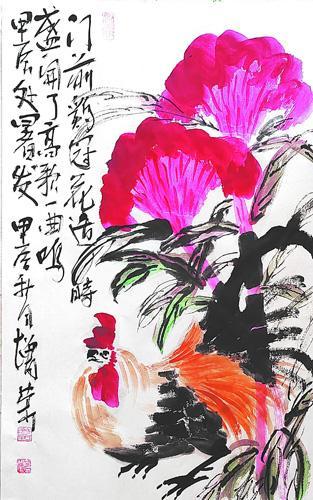 门前鸡冠花适时
盛开了高歌一曲鸣
甲辰处暑发 甲辰秋月